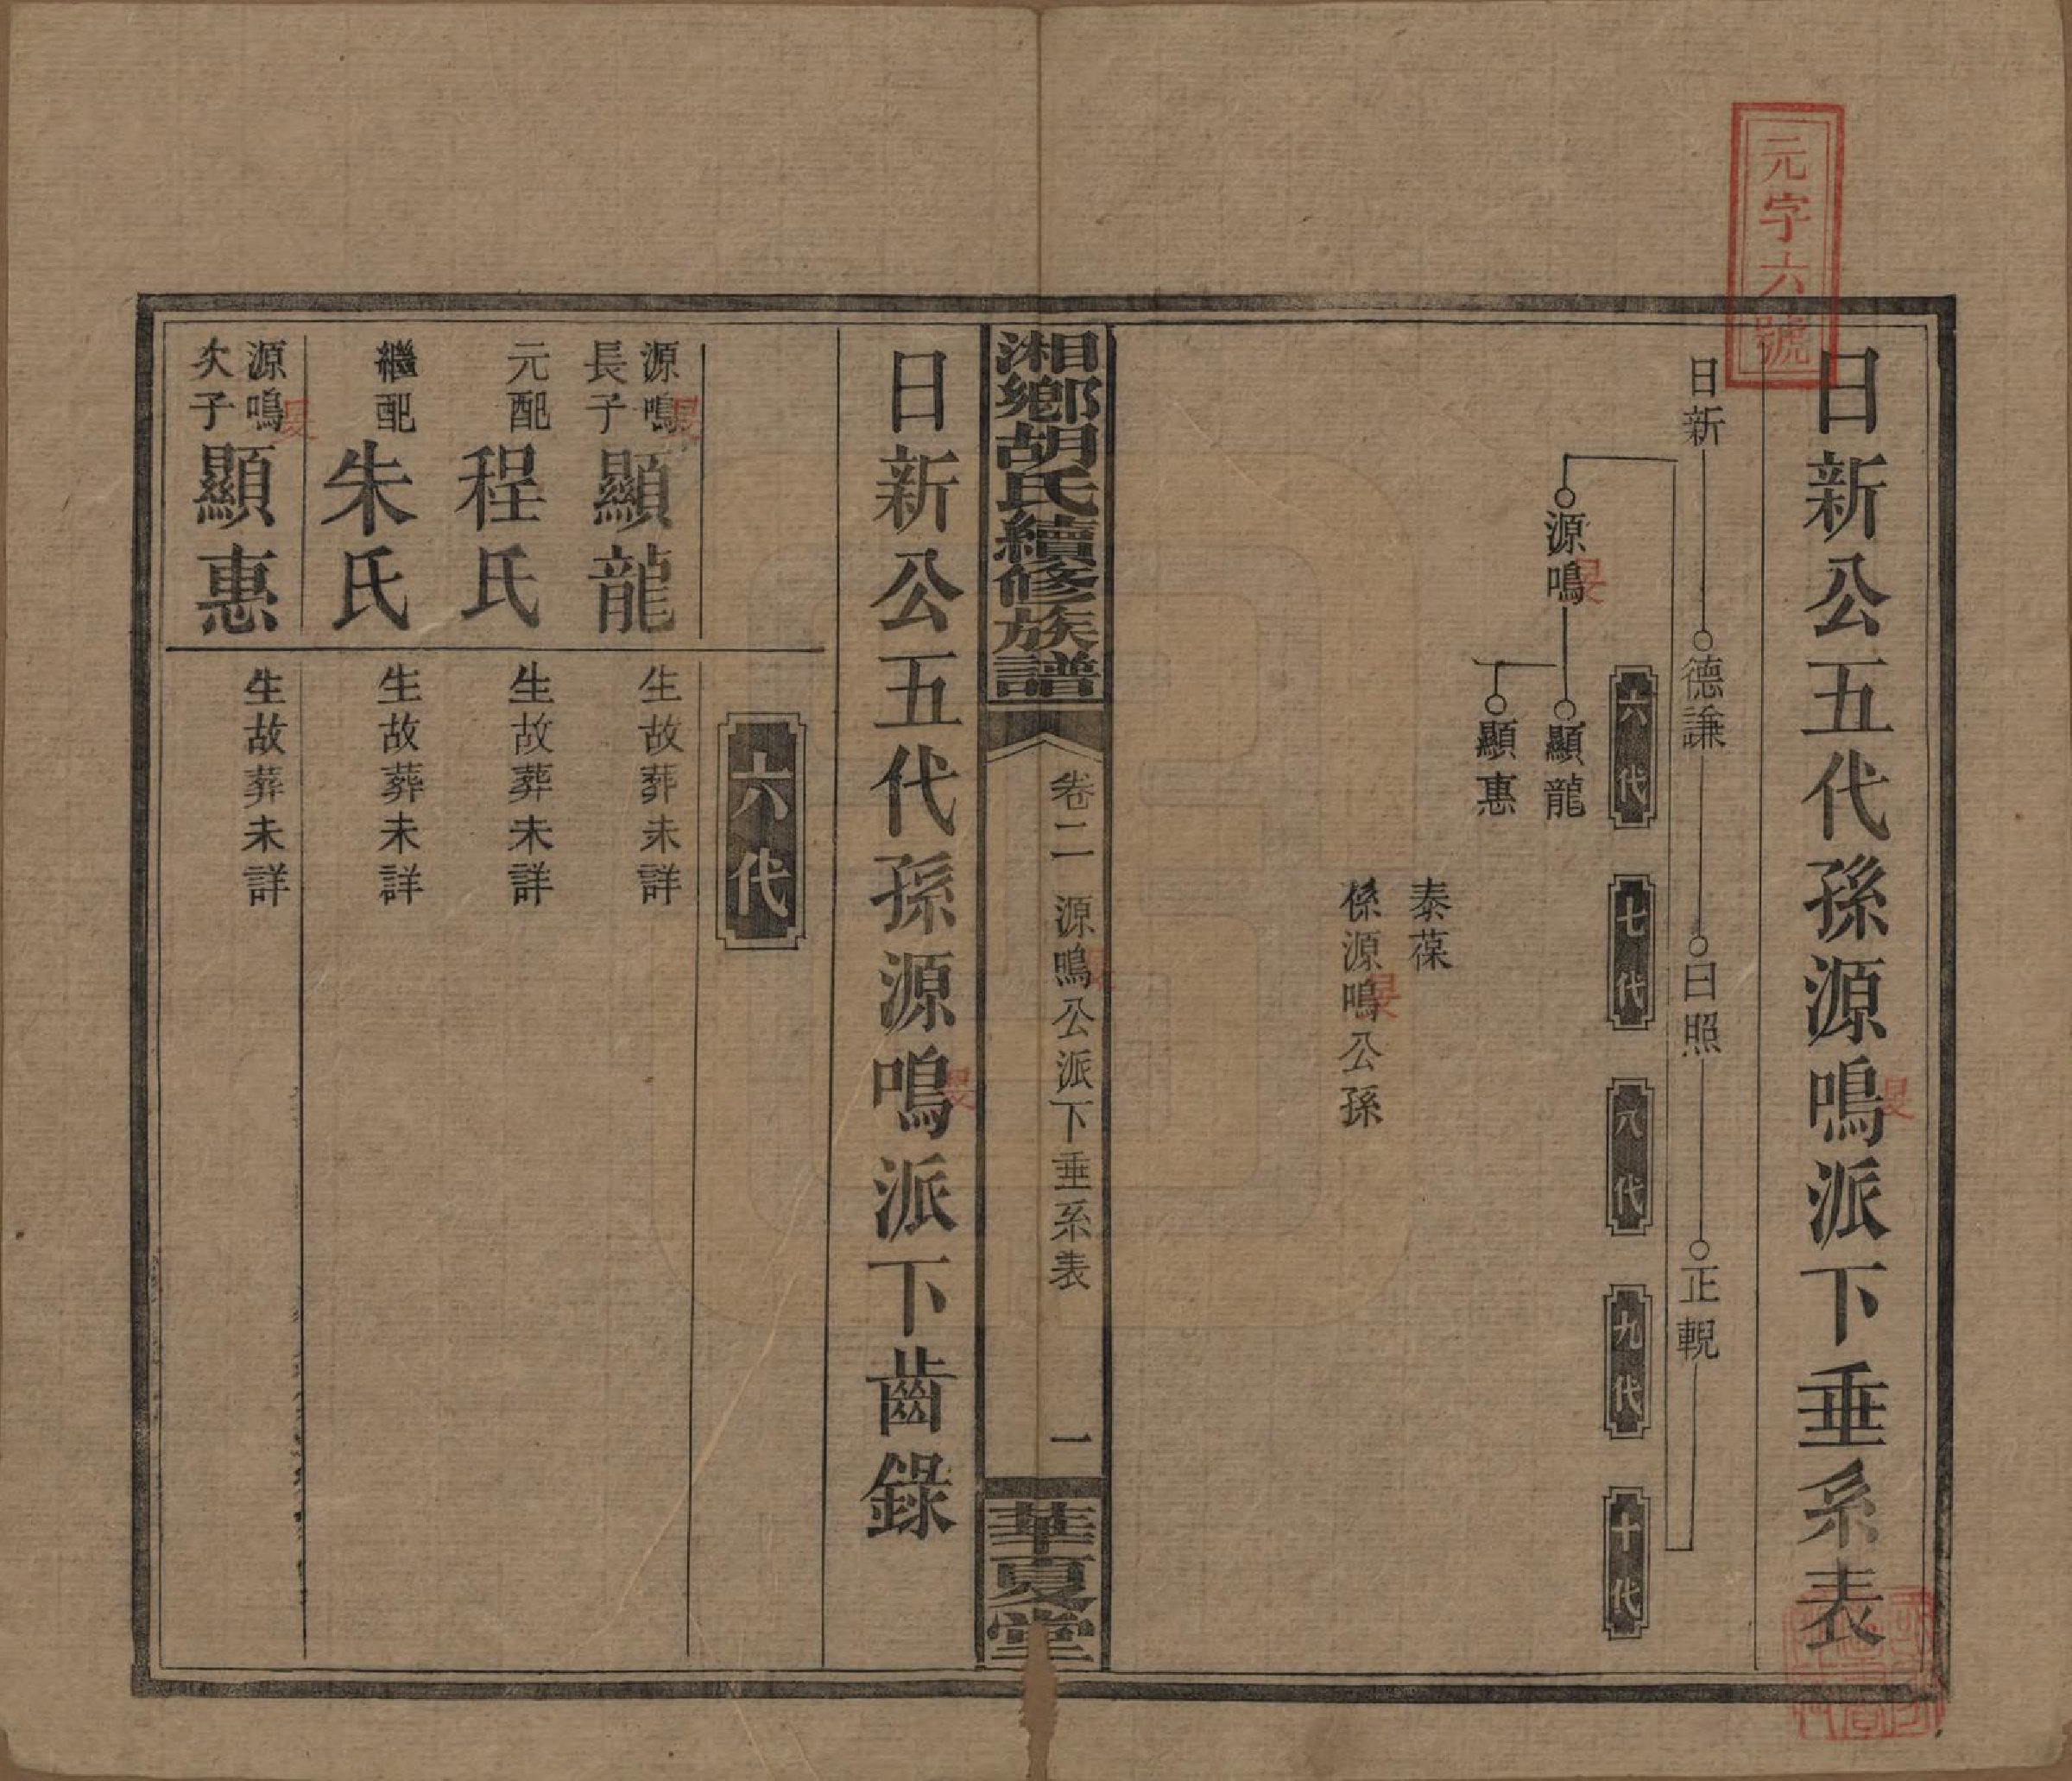 元字六號
日新公五代孫源鳴派下垂系表
日新
德謙
日照
正輗
六代
七代
八代
九代
十代
源鳴
顯龍
顯惠
泰葆
係源鳴公孫
湘鄉胡氏續修族譜
卷二
源鳴公派下垂系表
一
華夏堂
日新公五代孫源鳴派下齒錄
六代
源鳴
長子
顯龍
生故葬未詳
元配
程氏
生故葬未詳
繼配
朱氏
生故葬未詳
源鳴
次子
顯惠
生故葬未詳